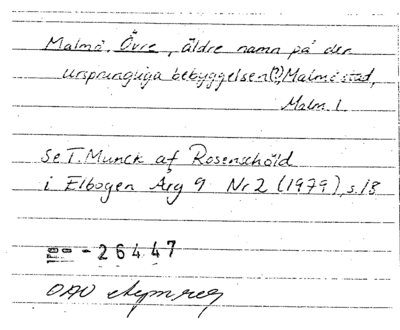 Malmö, Övre, äldre namn på den
ursprungliga bebyggelsen(?), Malmö stad,
Malm. l.
Se T. Munck af Rosenschöld
i Elbogen Årg 9 Nr 2 (1979), s. 13
- 26447
OAU